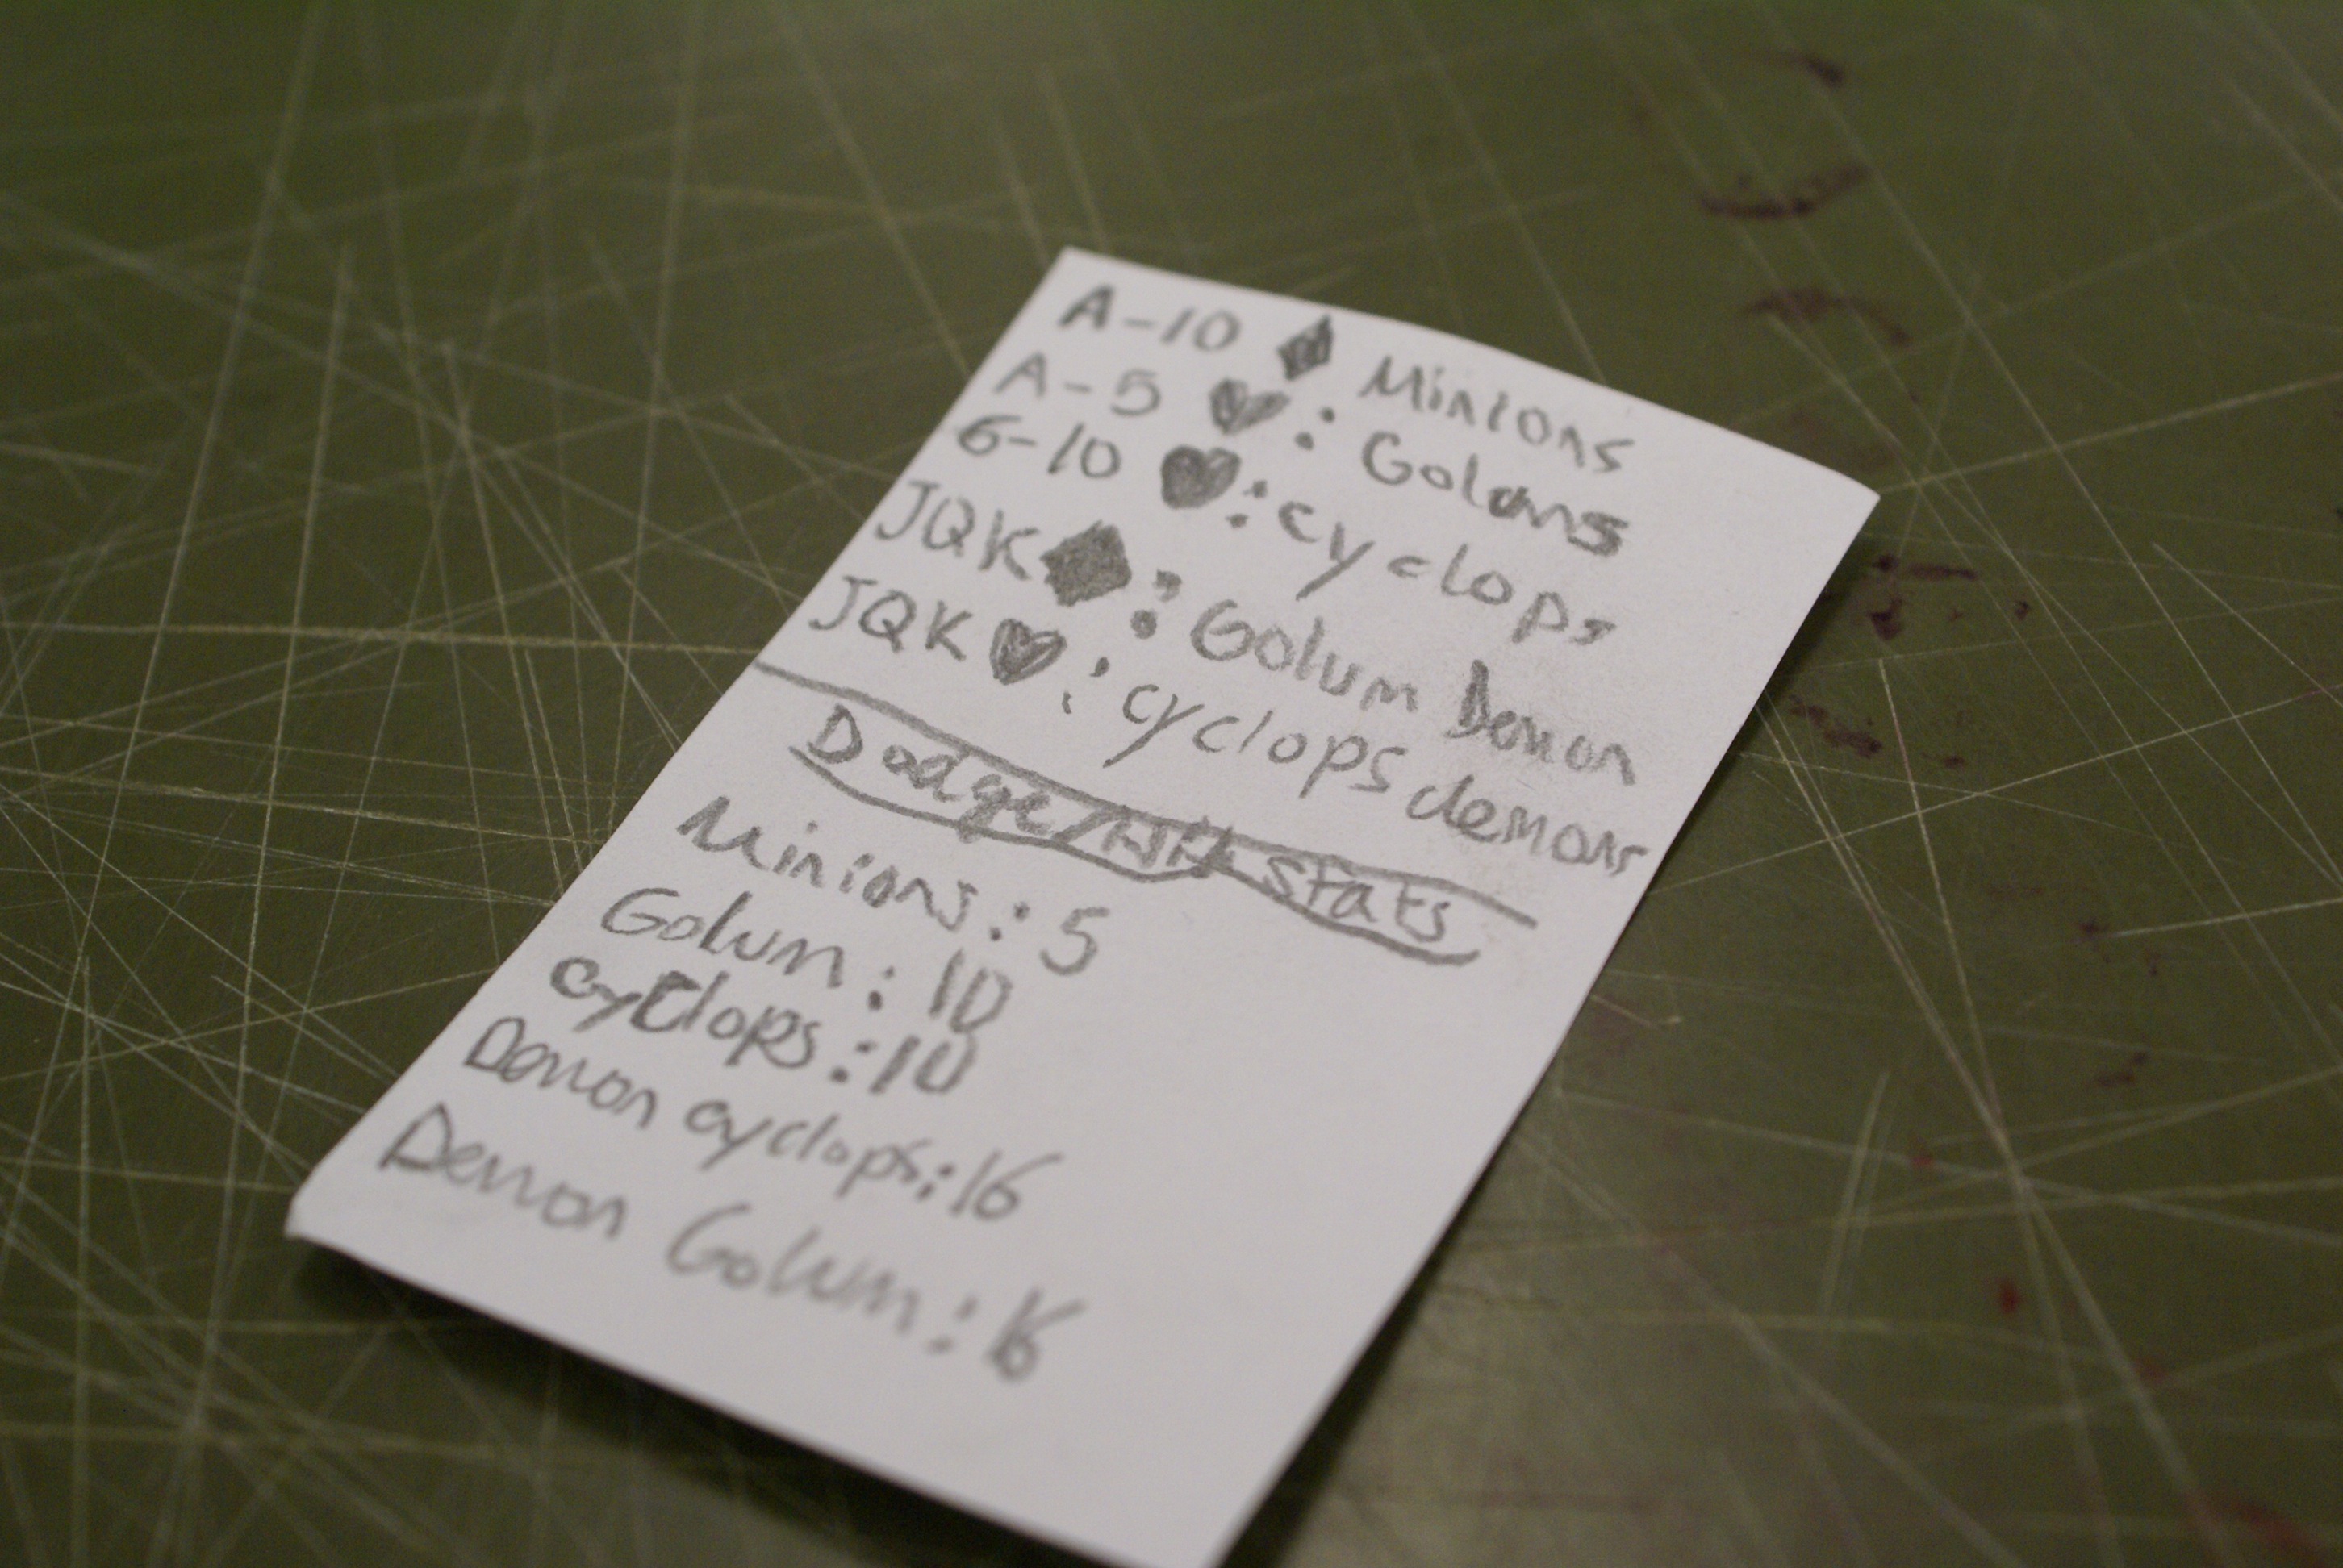 A-10 ♦ Minions
A-5 ♥: Golums
6-10 ♥: cyclops
JQK ♦: Golum Demon
JQK ♥: cyclops demons
Dodge/Hit stats
Minions: 5
Golum: 10
cyclops: 10
Demon cyclops: 16
Demon Golum: 16